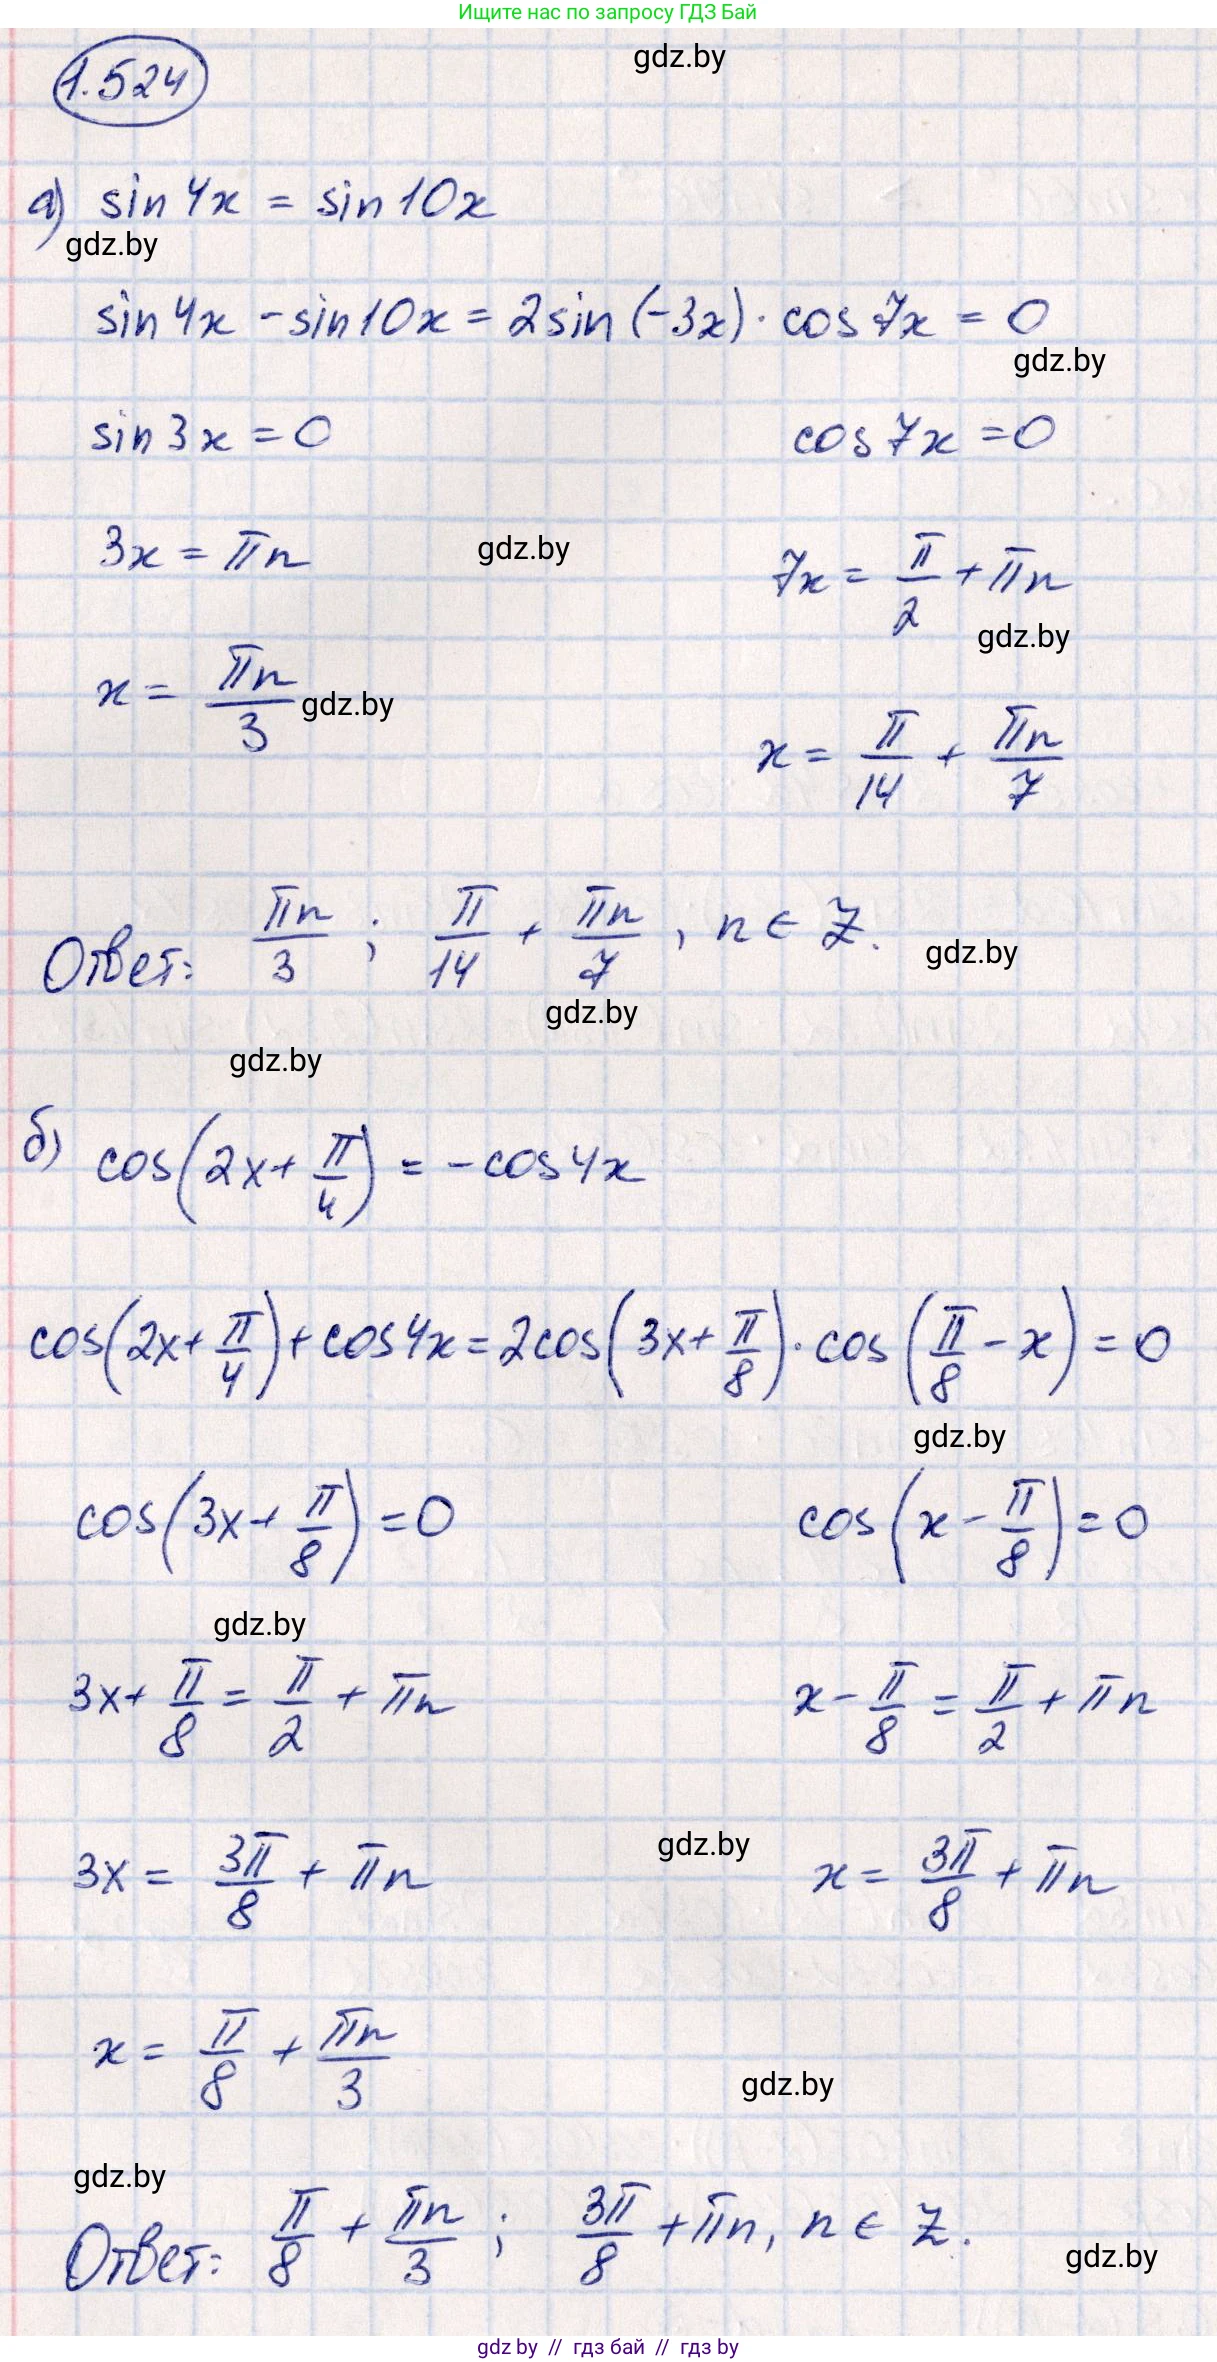 Ищите нас по запросу ГДЗ Бай
gdz.by
1.524
а) sin 4x = sin 10x
gdz.by
sin 4x - sin 10x = 2 sin (-3x) · cos 7x = 0
gdz.by
sin 3x = 0 cos 7x = 0
3x = πn gdz.by 7x = π/2 + πn
gdz.by
x = πn/3 gdz.by
x = π/14 + πn/7
Ответ: πn/3 ; π/14 + πn/7 , n ∈ Z.
gdz.by
gdz.by
gdz.by
б) cos(2x + π/4) = - cos 4x
cos(2x + π/4) + cos 4x = 2 cos(3x + π/8) · cos(π/8 - x) = 0
gdz.by
cos(3x + π/8) = 0 cos(x - π/8) = 0
gdz.by
3x + π/8 = π/2 + πn x - π/8 = π/2 + πn
gdz.by
3x = 3π/8 + πn x = 3π/8 + πn
x = π/8 + πn/3
gdz.by
gdz.by
Ответ: π/8 + πn/3 ; 3π/8 + πn, n ∈ Z.
gdz.by
gdz by // гдз бай // гдз by